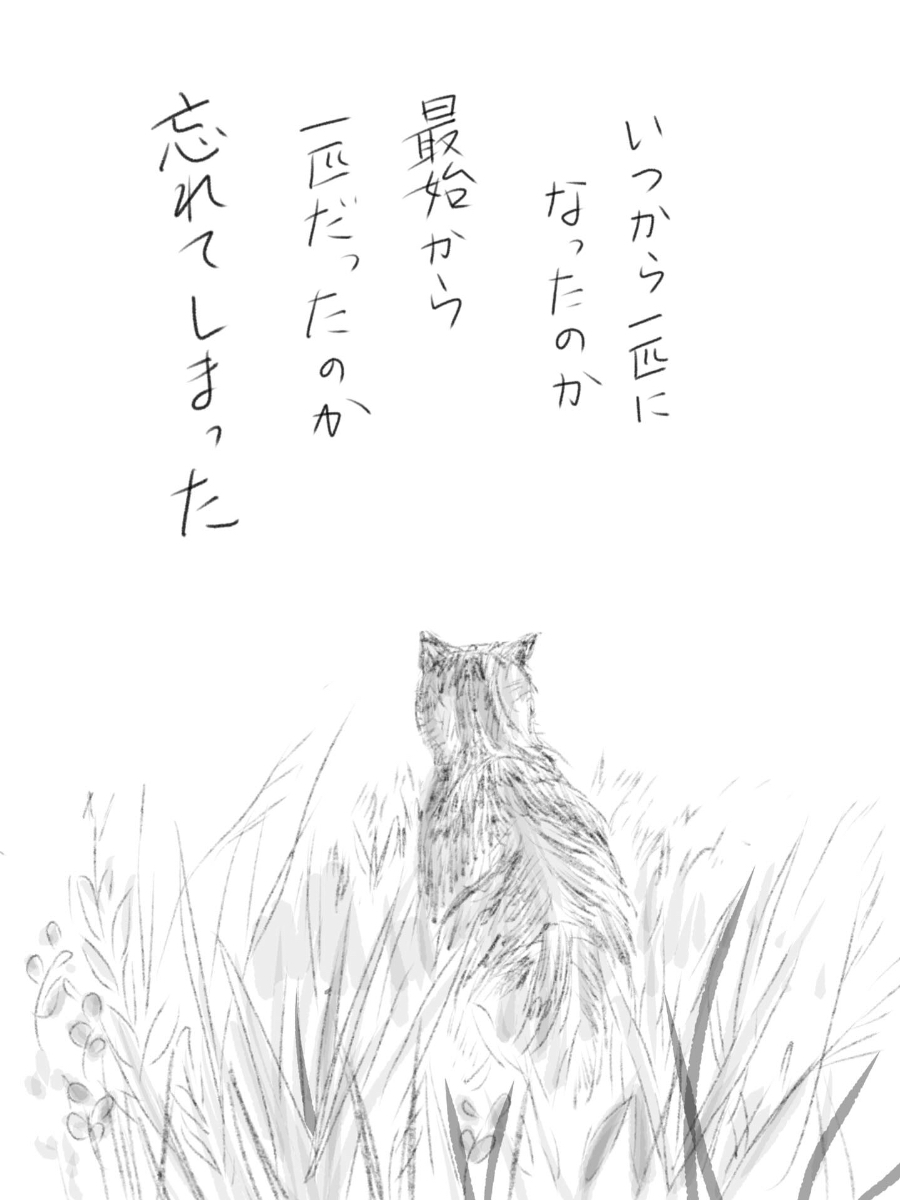 いつから一匹に
なったのか
最始から
一匹だったのか
忘れてしまった